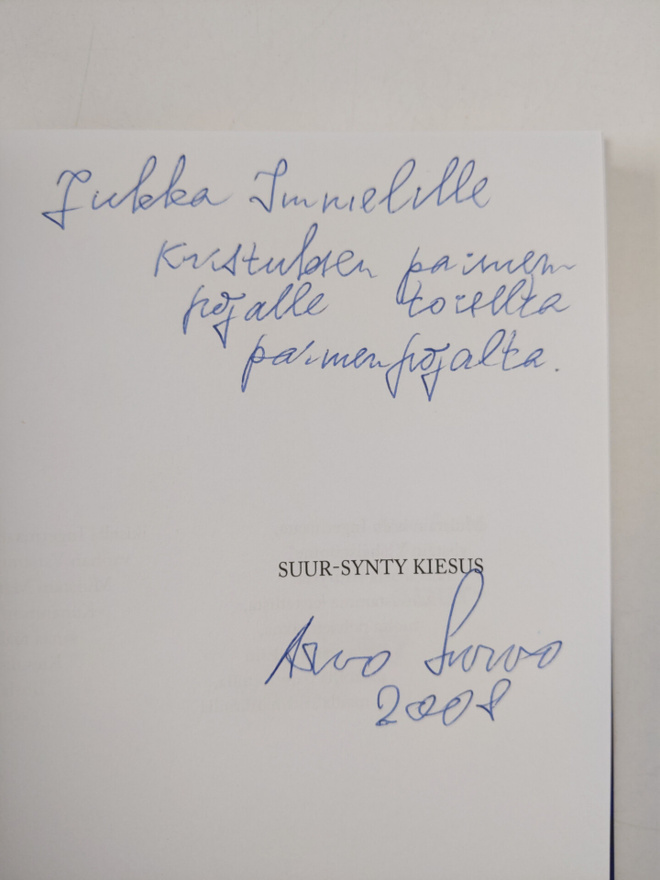 Jukka
Kristuksen paimen
pojalle toiselta
paimenpojalta.
SUUR-SYNTY KIESUS
Arvo Survo
2008